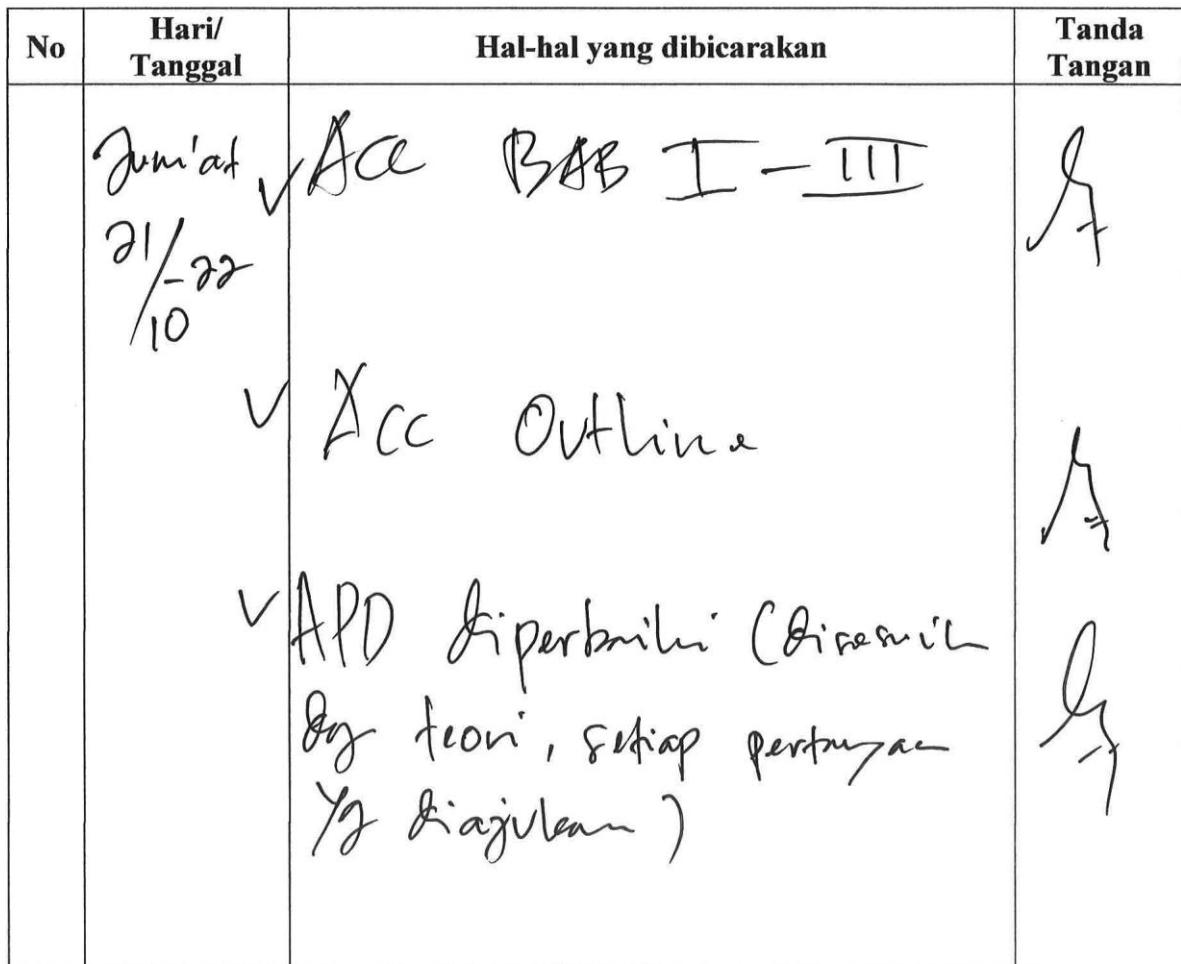 No Hari/ Tanggal Hal-hal yang dibicarakan Tanda Tangan
Jum'at
21/10-22
✓ Acc BAB I - III
✓ Acc Outline
✓ APD diperbaiki (disesuaik
dg teori, setiap pertanyaan
yg diajukan)